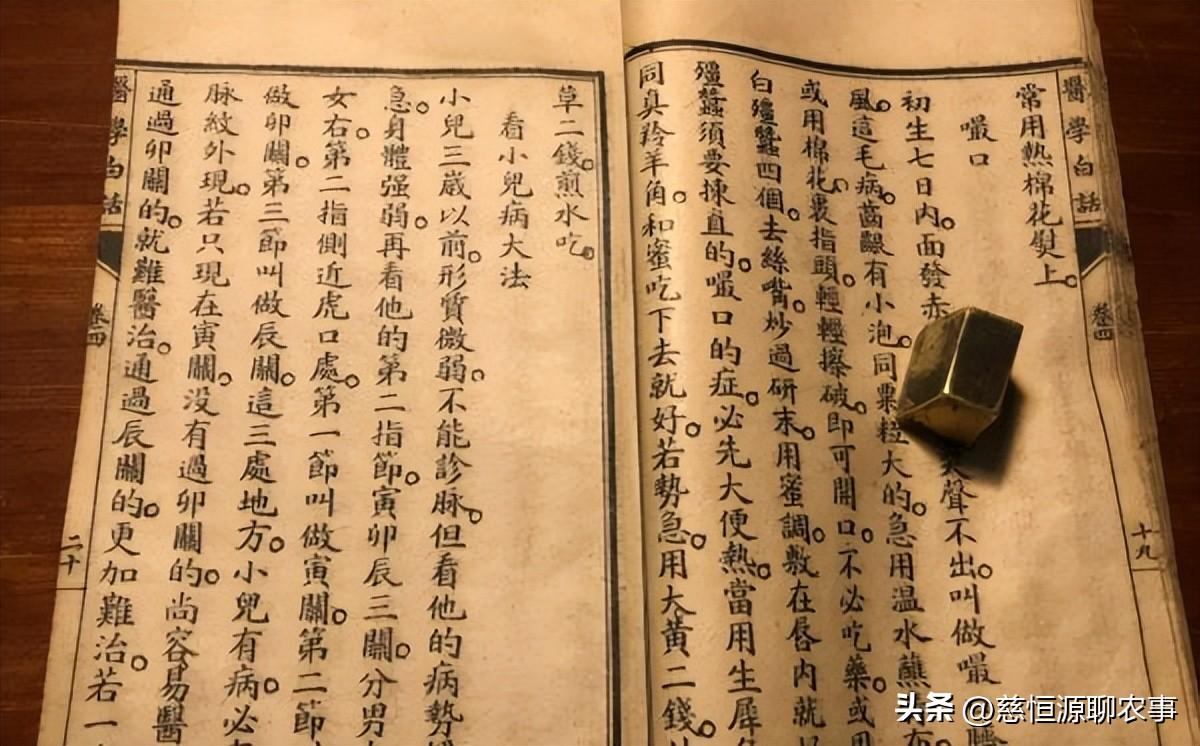 醫學白話
卷四
十九
常用熱棉花熨上。
嘬口
初生七日內。面發赤聲不出。叫做嘬
風。這毛病。齒齦有小泡。同粟粒大的。急用温水蘸
或用棉花裹指頭。輕輕擦破。即可開口。不必吃藥。或用
白殭蠶四個。去絲嘴。炒過研末。用蜜調。敷在唇內就
殭蠶須要揀直的。嘬口的症。必先大便熱。當用生犀
同真羚羊角。和蜜吃下去就好。若勢急。用大黃二錢。
草二錢。煎水吃。
看小兒病大法
小兒三歲以前。形質微弱。不能診脉。但看他的病勢
急。身體强弱。再看他的第二指節。寅卯辰三關。分男
女右。第二指側近虎口處。第一節叫做寅關。第二節
做卯關。第三節叫做辰關。這三處地方。小兒有病。必
脉紋外現。若只現在寅關。没有過卯關的。尚容易醫
通過卯關的。就難醫治。通過辰關的。更加難治。若一
醫學白話
卷四
二十
头条 @慈恒源聊农事